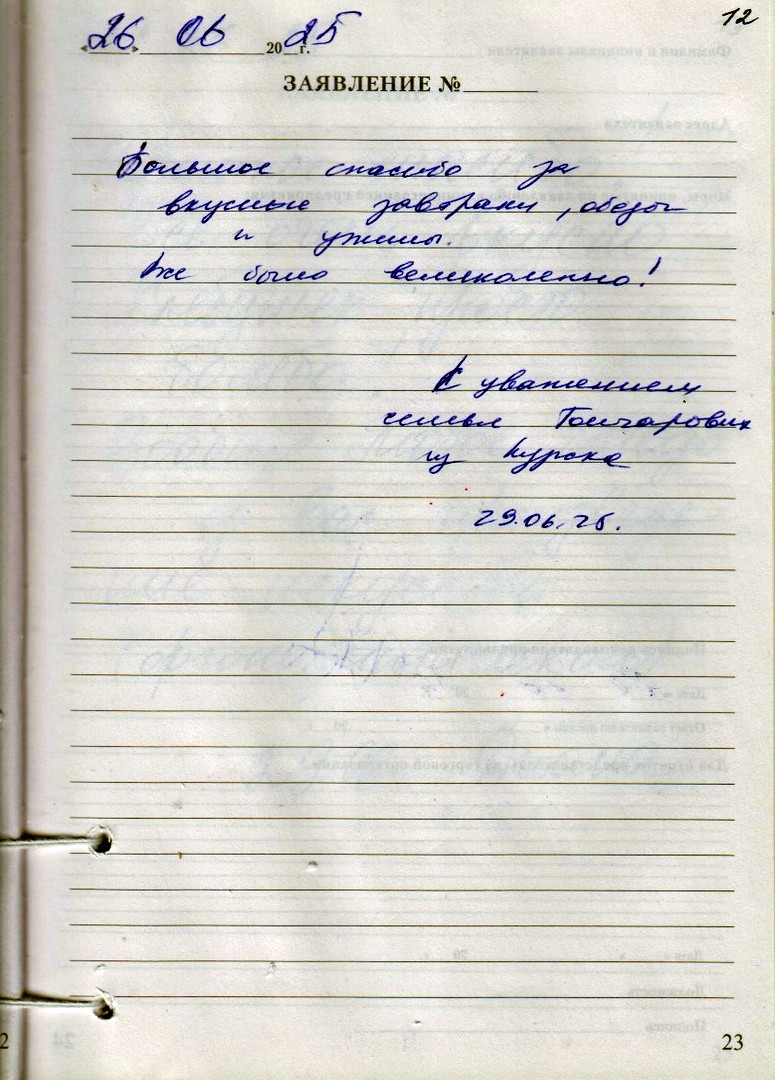 12
«26» 06 2025 г.
ЗАЯВЛЕНИЕ №
Большое спасибо за
вкусные завтраки, обеды
и ужины.
Все было великолепно!
С уважением
семья Гончарович
из Курска
29.06.25.
2
23